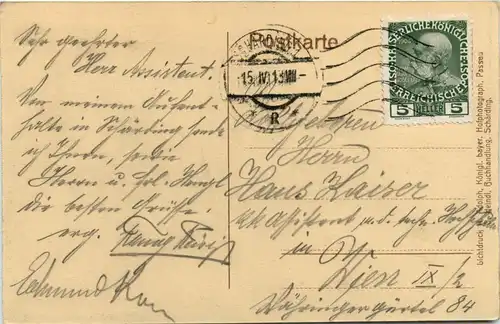 Postkarte
Sehr geehrter
Herr Assistent.
Von meinem Aufent-
halte in Schärding sende
ich Ihnen, sowie
Herrn u. Frl.
die besten Grüße
erg.
Edmund
15. IV. 13 VIII
R
KAISERLICHE KÖNIGLICHE
ÖSTERREICHISCHE POST
5 HELLER 5
Herrn
Hans Kaiser
k.k. Assistent a.d. techn. Hochschule
in
Wien IX/2
Währingergürtel 84
Lichtdruck Königl. bayer. Hofphotograph, Passau
Buchhandlung, Schärding.